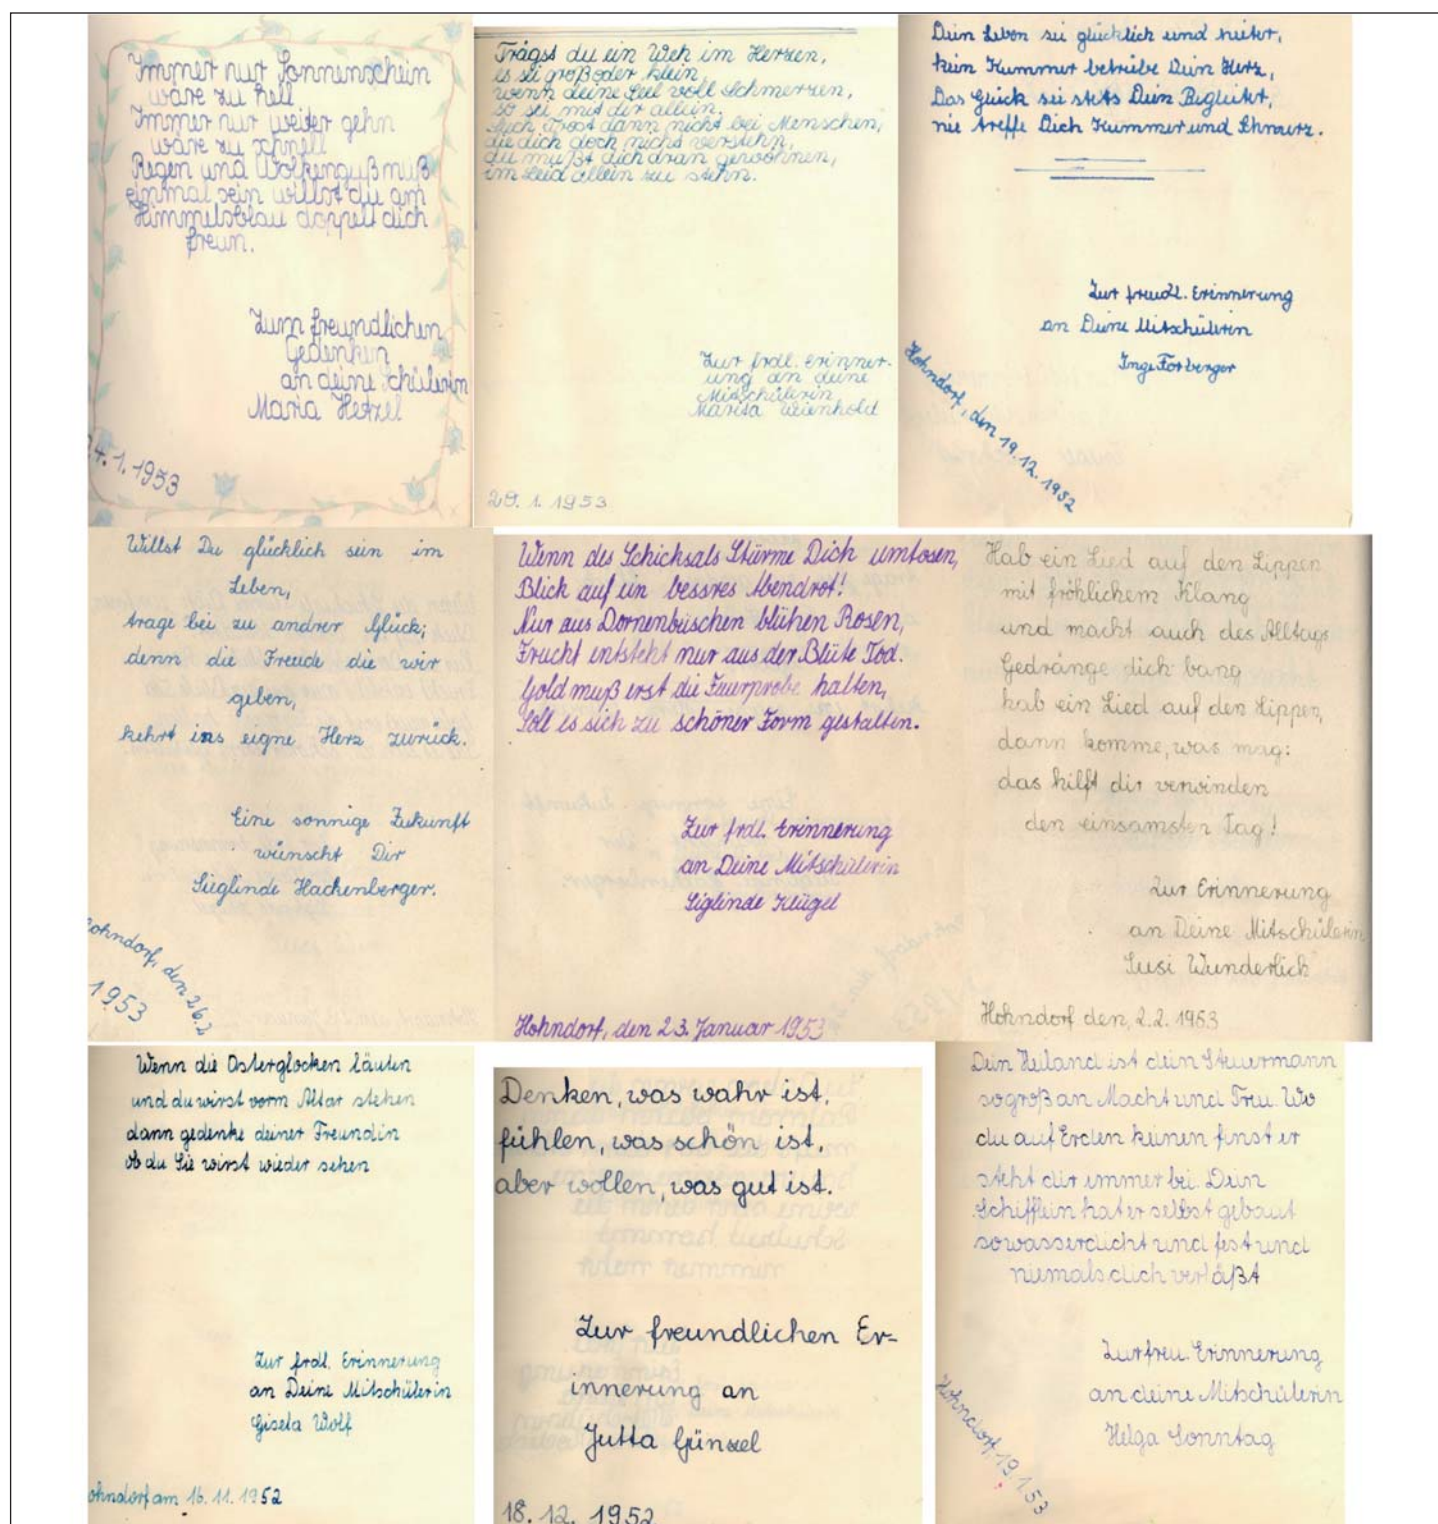 Immer nur Sonnenschein
wäre zu hell
Immer nur weiter gehn
wäre zu schnell
Regen und Wolkenguß muß
einmal sein willst du am
Himmelsblau doppelt dich
freun.
Zum freundlichen
Gedenken
an deine Schülerin
Maria Hetzel
4.1.1953
Trägst du ein Weh im Herzen,
es sei groß oder klein,
wenn deine Seel voll Schmerzen,
so sei mit dir allein.
Such Trost dann nicht bei Menschen,
die dich doch nicht verstehn,
du mußt dich dran gewöhnen,
im Leid allein zu stehn.
Zur frdl. Erinner-
ung an deine
Mitschülerin
Marita Wienhold
29. 1. 1953
Dein Leben sei glücklich und heiter,
kein Kummer betrübe Dein Herz,
Das Glück sei stets Dein Begleiter,
nie treffe Dich Kummer und Schmerz.
Zur freudl. Erinnerung
an Deine Mitschülerin
Inge Forberger
Hohndorf, den 19.12.1952
Willst Du glücklich sein im
Leben,
trage bei zu andrer Glück;
denn die Freude die wir
geben,
kehrt ins eigne Herz zurück.
Eine sonnige Zukunft
wünscht Dir
Sieglinde Hackenberger.
ohndorf, den 26.2
1953
Wenn des Schicksals Stürme Dich umtosen,
Blick auf ein bessres Abendrot!
Nur aus Dornenbüschen blühen Rosen,
Frucht entsteht nur aus der Blüte Tod.
Gold muß erst die Feuerprobe halten,
Soll es sich zu schöner Form gestalten.
Zur frdl. Erinnerung
an Deine Mitschülerin
Siglinde Klügel
Hohndorf, den 23. Januar 1953
Hab ein Lied auf den Lippen
mit fröhlichem Klang
und macht auch des Alltags
Gedränge dich bang
hab ein Lied auf den Lippen,
dann komme, was mag:
das hilft dir verwinden
den einsamsten Tag!
Zur Erinnerung
an Deine Mitschülerin
Susi Wunderlich
Hohndorf den, 2.2. 1953
Wenn die Osterglocken läuten
und du wirst vorm Altar stehen
dann gedenke deiner Freundin
ob du Sie wirst wieder sehen
Zur frdl. Erinnerung
an Deine Mitschülerin
Gisela Wolf
ohndorf am 16. 11. 1952
Denken, was wahr ist,
fühlen, was schön ist,
aber wollen, was gut ist.
Zur freundlichen Er-
innerung an
Jutta Günzel
18. 12. 1952
Dein Heiland ist dein Steuermann
so groß an Macht und Treu. Wo
du auf Erden keinen finst er
steht dir immer bei. Dein
Schifflein hat er selbst gebaut
so wasserdicht und fest und
niemals dich verläßt
Zur freu. Erinnerung
an deine Mitschülerin
Helga Sonntag
Hohndorf, 19.1.53